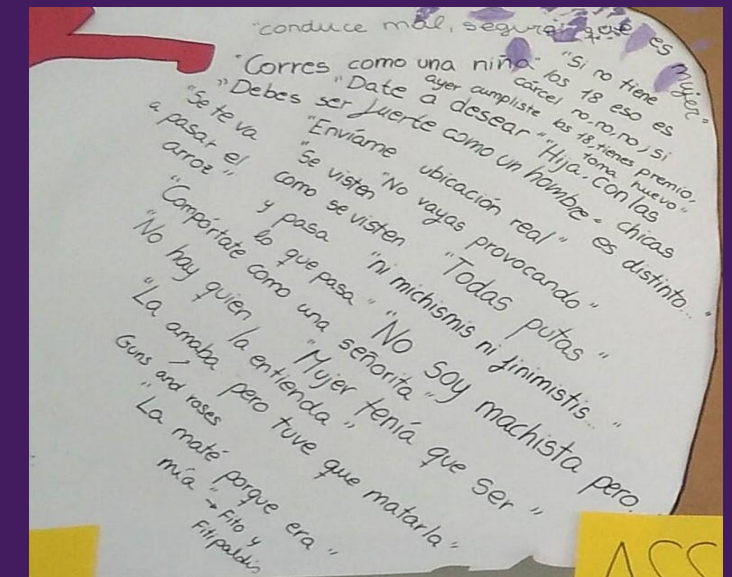 "conduce mal, seguro que es mujer"
"Corres como una niña"
"Si no tiene
los 18 eso es
cárcel no, no, no, si
ayer cumpliste los 18, tienes premio,
toma huevo"
"Date a desear"
"Hija, con las
chicas
es distinto..."
"Debes ser fuerte como un hombre"
"Se te va
a pasar el
arroz"
"Envíame ubicación real"
"Se visten
como se visten
y pasa
lo que pasa"
"No vayas provocando"
"Todas putas"
"ni michismis ni finimistis..."
"Compórtate como una señorita"
"No soy machista pero
"No hay quien
la entienda"
"Mujer tenía que ser"
"La amaba, pero tuve que matarla"
Guns and roses
"La maté porque era
mía" → Fito y
Fitipaldis